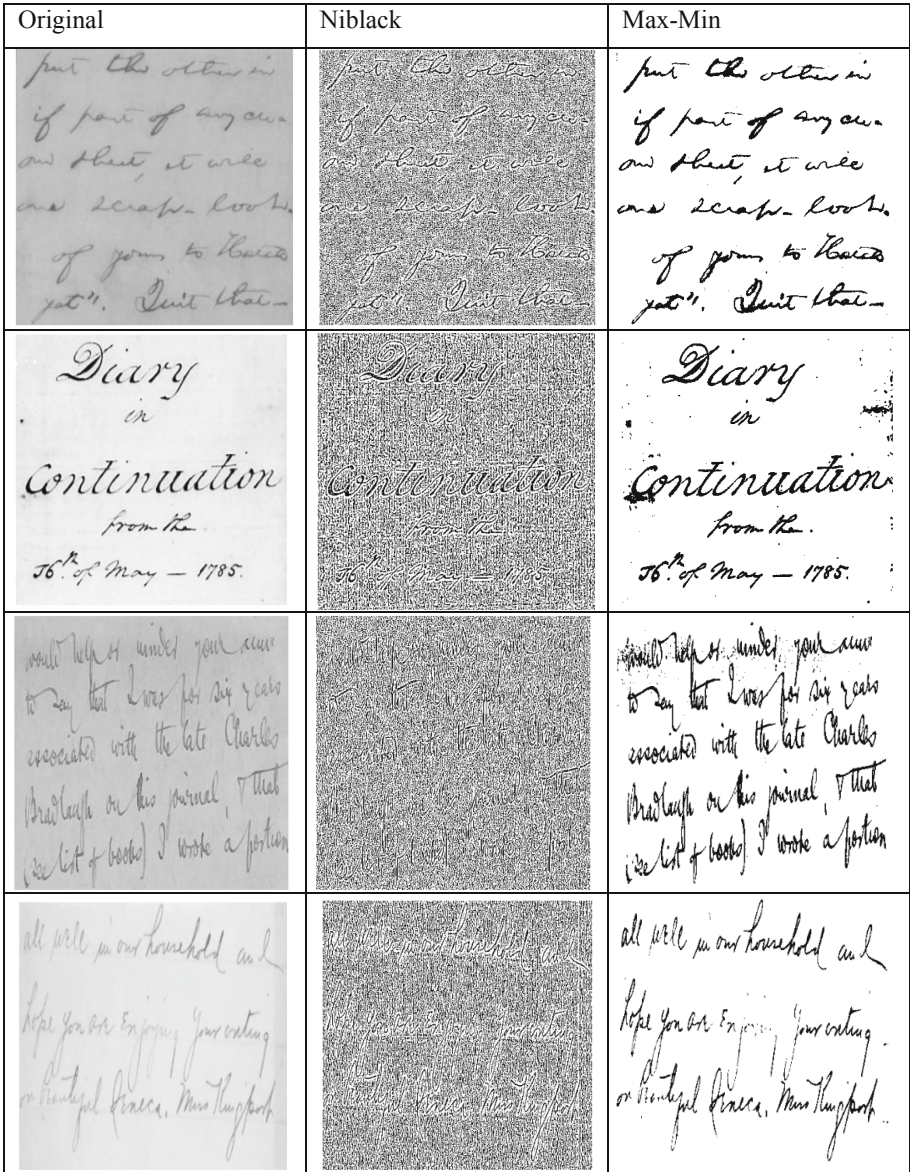 Original
Niblack
Max-Min
put the other in
if part of any
sheet, it will
one scrap-book.
of yours to
yet". Quit that-
put the other in
if part of any
sheet, it will
one scrap-book.
of yours to
yet". Quit that-
put the other in
if part of any
sheet, it will
one scrap-book.
of yours to
yet". Quit that-
Diary
in
Continuation
from the
16th. of May — 1785.
Diary
in
Continuation
from the
16th of May — 1785.
Diary
in
Continuation
from the.
16th. of May — 1785.
would help or hinder your
to say that I was for six years
associated with the late Charles
Bradlaugh on his journal, & that
(see list of books) I wrote a portion
associated with the late
would help or hinder your
to say that I was for six years
associated with the late Charles
Bradlaugh on his journal, & that
(see list of books) I wrote a portion
all well in our household and
hope you are Enjoying your outing
on Beautiful Seneca, Miss Kingsport.
all well in our household and
hope you are Enjoying your outing
Beautiful Seneca, Miss Kingsport.
all well in our household and
hope you are Enjoying your outing
on Beautiful Seneca, Miss Kingsport.